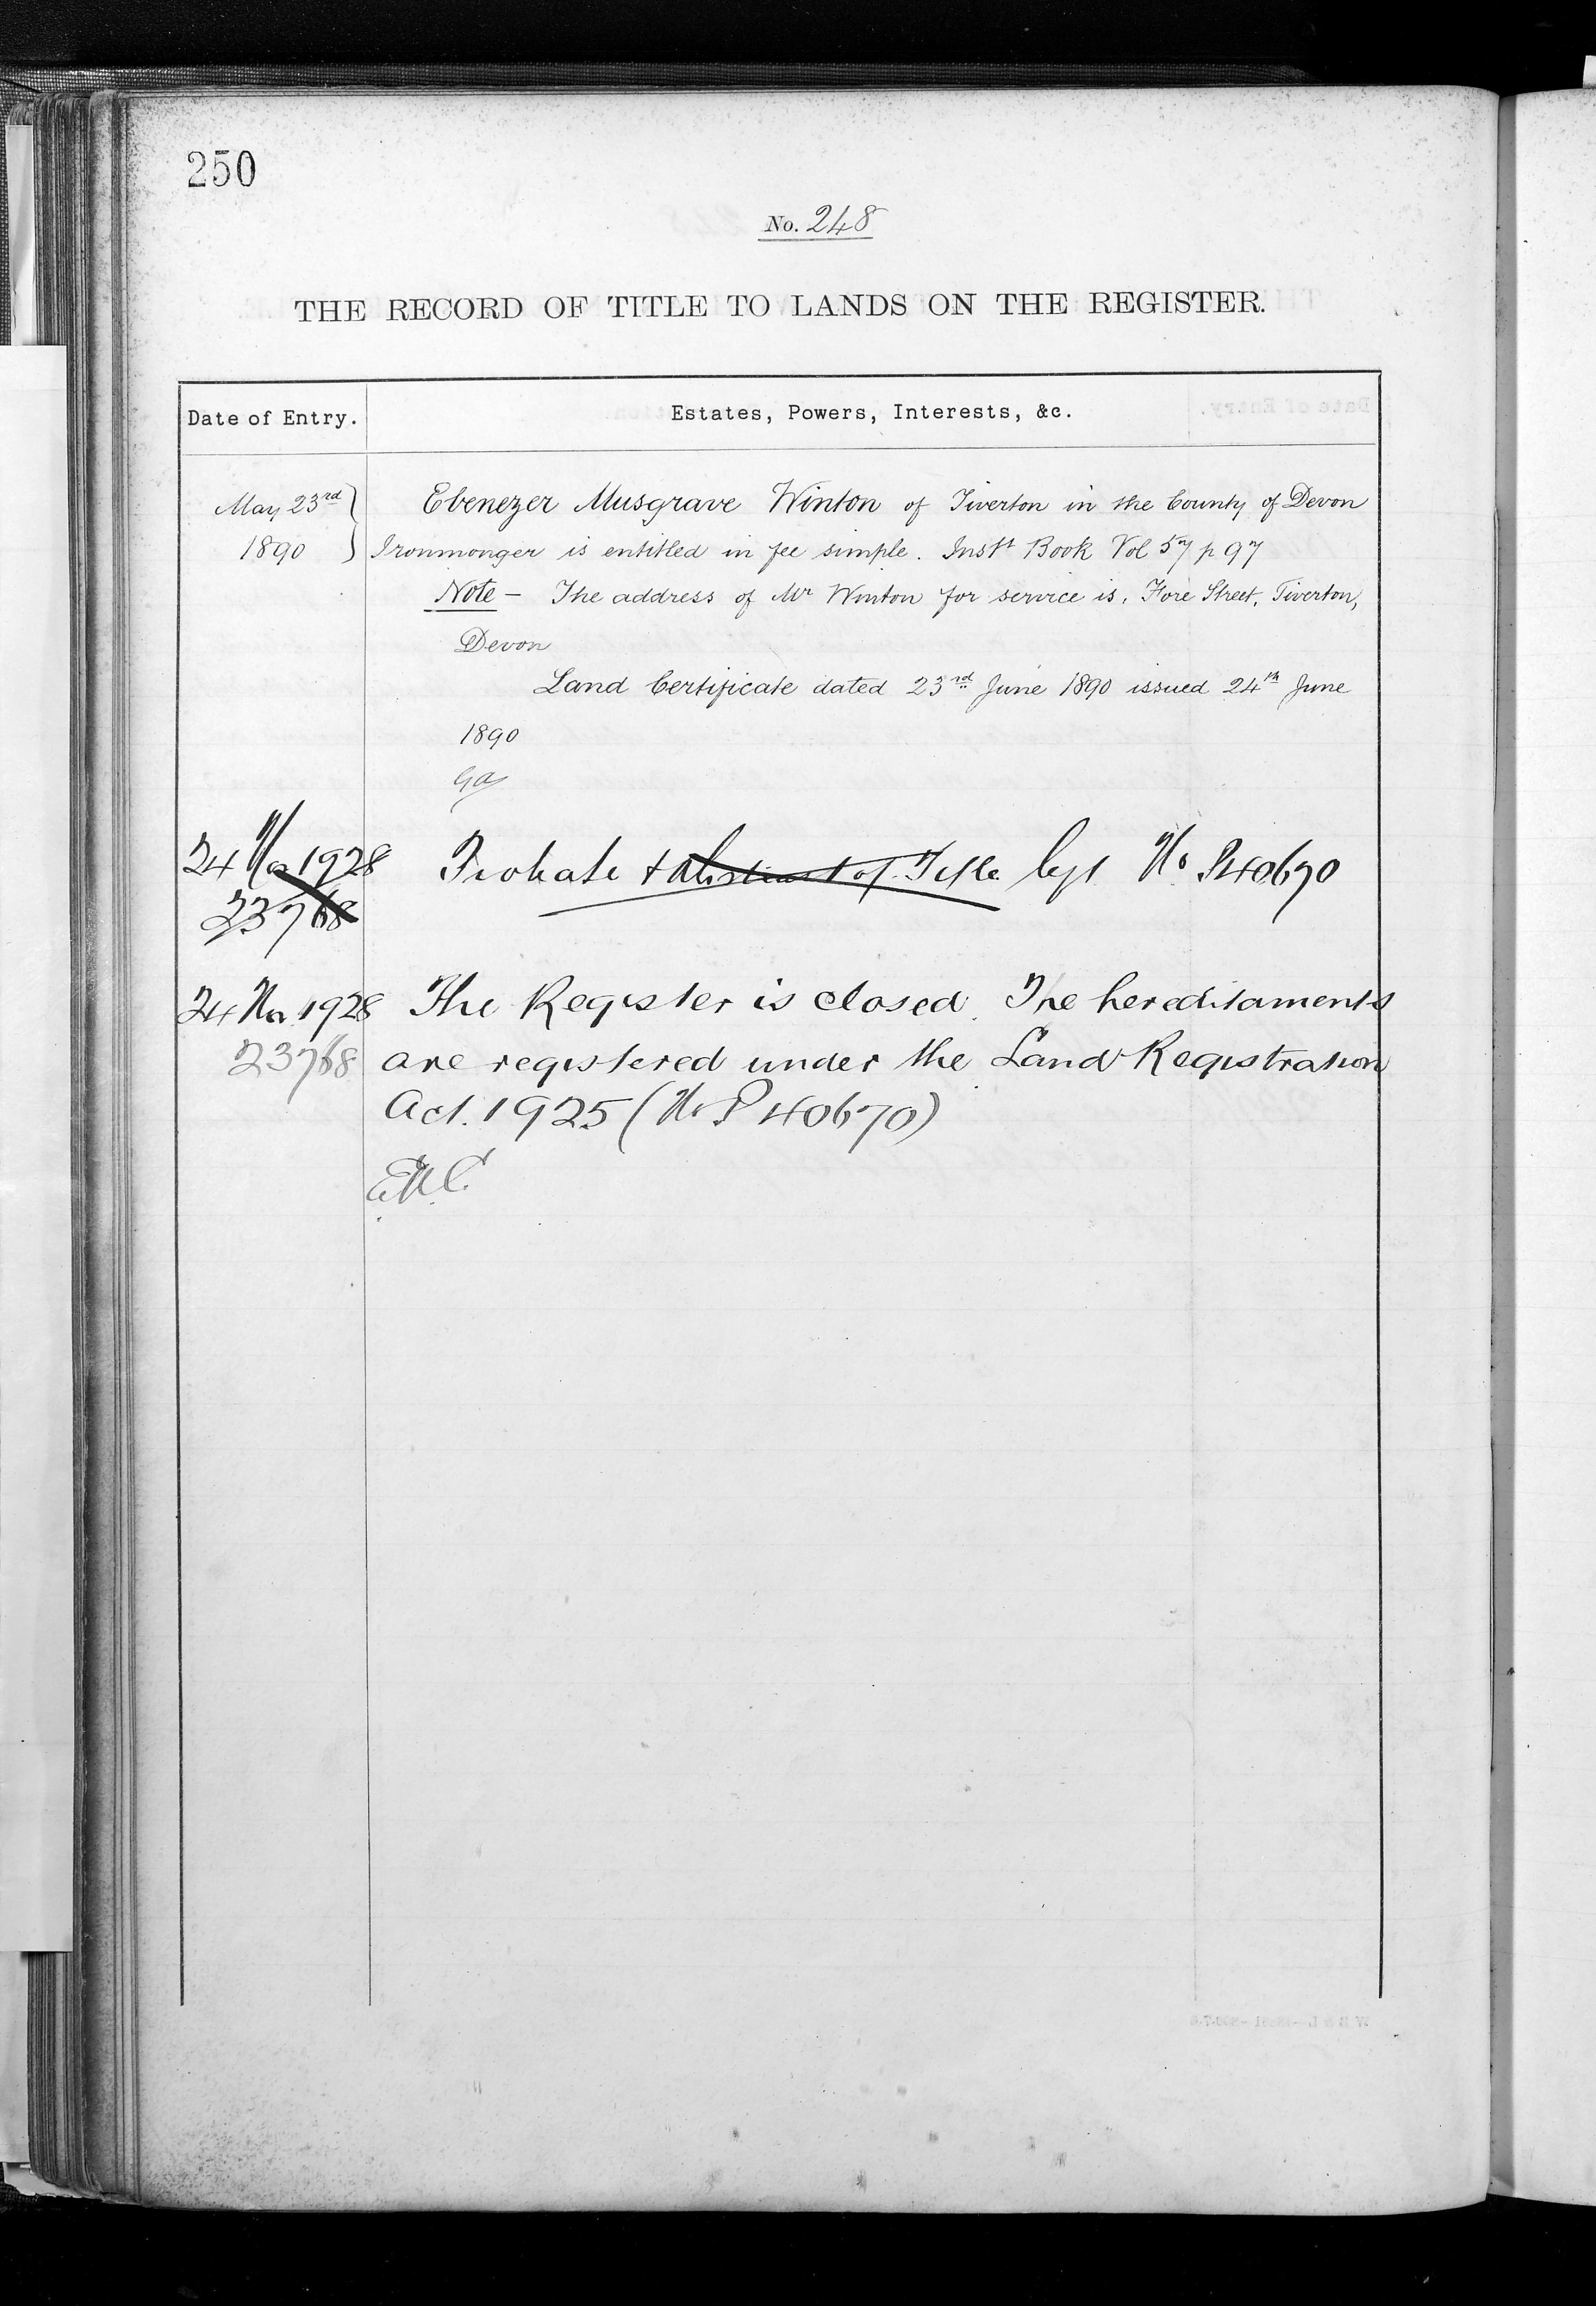 250
No. 248
THE RECORD OF TITLE TO LANDS ON THE REGISTER.
Date of Entry. Estates, Powers, Interests, &c.
May 23rd Ebenezer Musgrave Winton of Tiverton in the County of Devon
1890 Ironmonger is entitled in fee simple. Instt Book Vol 57 p 97
Note - The address of Mr Winton for service is, Fore Street, Tiverton,
Devon
Land Certificate dated 23rd June 1890 issued 24th June
1890
24 1928 Probate & Abstract of Title No P40670
23768
24 1928 The Register is closed. The hereditaments
23768 are registered under the Land Registration
Act. 1925 (No P 40670)